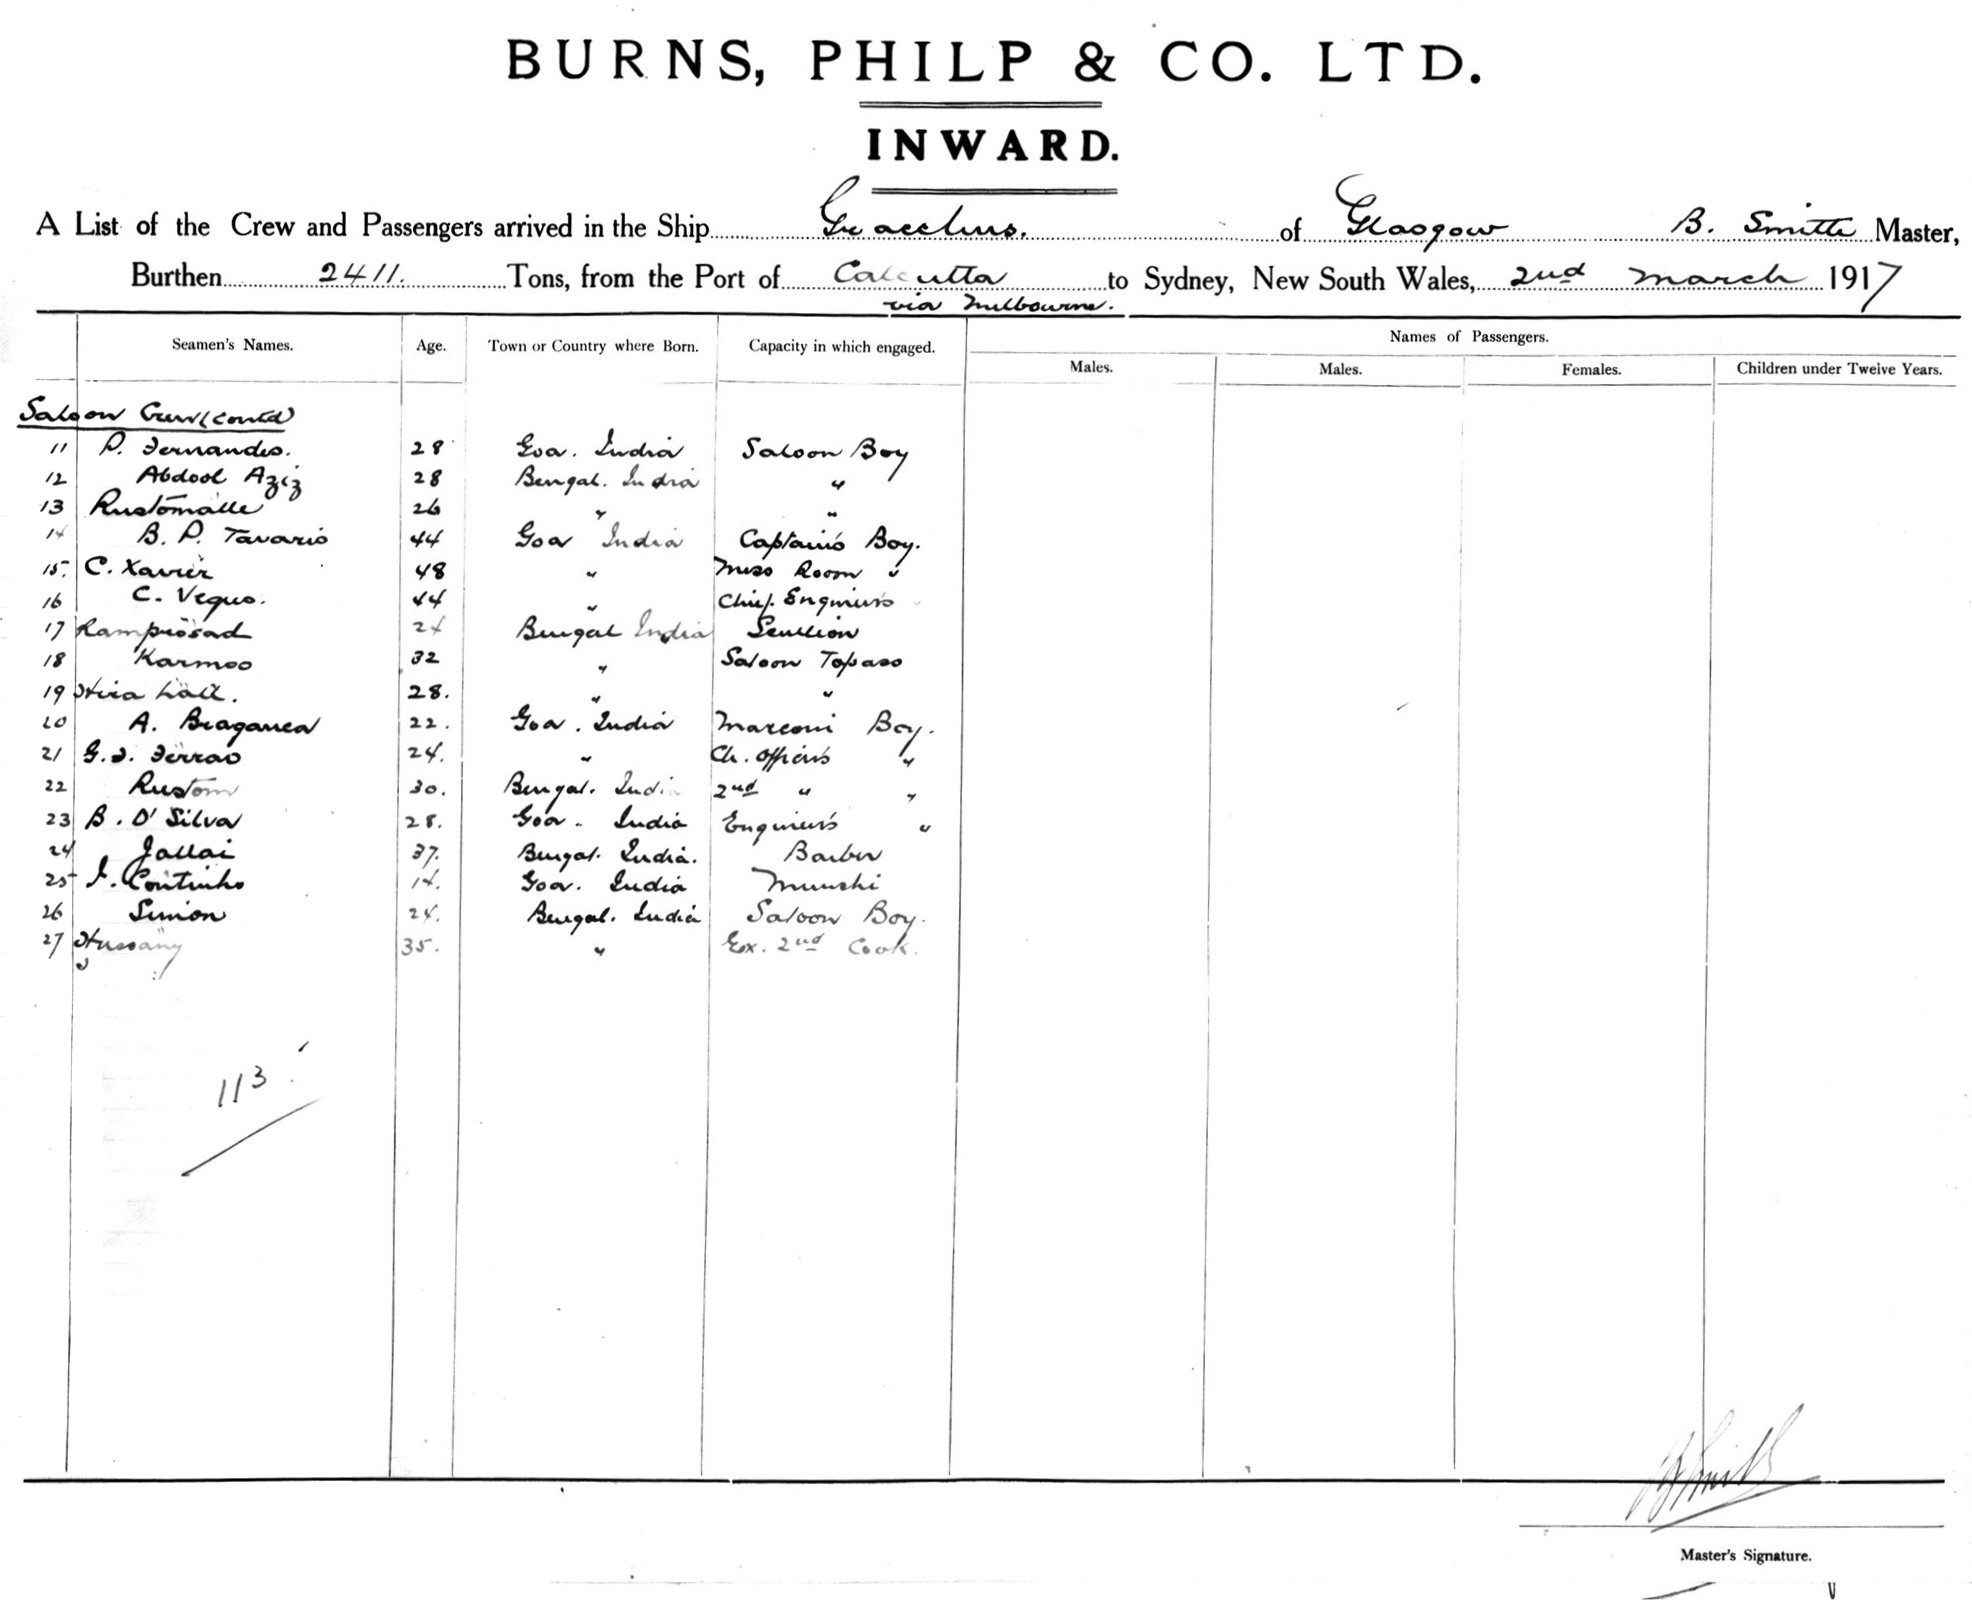 BURNS, PHILP & CO. LTD.
INWARD.
A List of the Crew and Passengers arrived in the Ship Gracchus. of Glasgow B. Smith Master,
Burthen 2411. Tons, from the Port of Calcutta to Sydney, New South Wales, 2nd March 1917
via Melbourne.
Seamen's Names. Age. Town or Country where Born. Capacity in which engaged. Names of Passengers.
Males. Males. Females. Children under Twelve Years.
Saloon Crew (contd)
11 P. Fernandes. 28 Goa. India Saloon Boy
12 Abdool Aziz 28 Bengal. India "
13 Rustomalle 26 " "
14 B. P. Tavario 44 Goa India Captain's Boy.
15. C. Xavier 48 " Mess Room "
16 C. Vegus. 44 " Chief. Engineer's
17 Ramprosad 24 Bengal India Scullion
18 Karmoo 32 " Saloon Topass
19 Hira Lall. 28. " "
20 A. Braganca 22. Goa. India Marconi Boy.
21 G. F. Ferrao 24. " Ch. Officer's "
22 Rustom 30. Bengal. India 2nd " "
23 B. D'Silva 28. Goa. India Engineer's "
24 Jallai 37. Bengal. India. Barber
25 Coutinho 14. Goa. India Munshi
26 Simon 24. Bengal. India Saloon Boy.
27 Hussany 35. " Ex. 2nd Cook.
113
B Smith
Master's Signature.